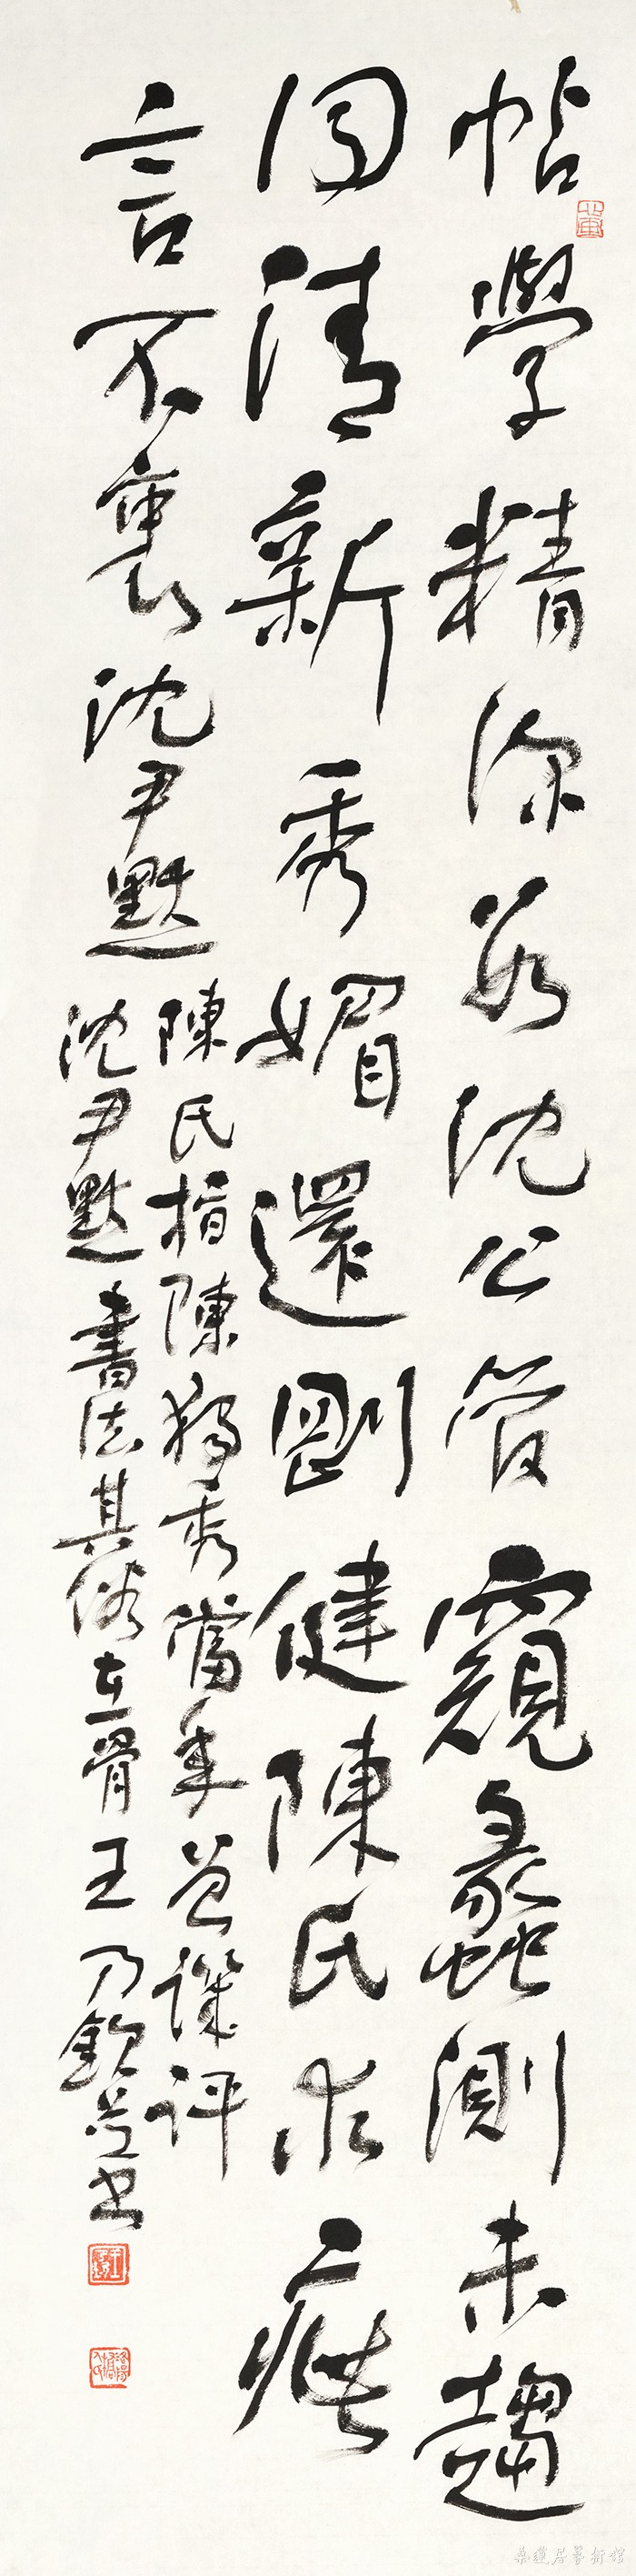 帖學精深數沈公管窺蠡測未趨
同清新秀媚還剛健陳氏求疵
言不衷沈尹默
陳氏指陳獨秀當年曾譏評
沈尹默書法其俗在骨王乃欽並書